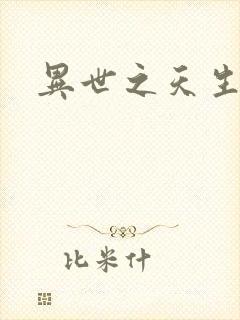 異世之天生
比米什